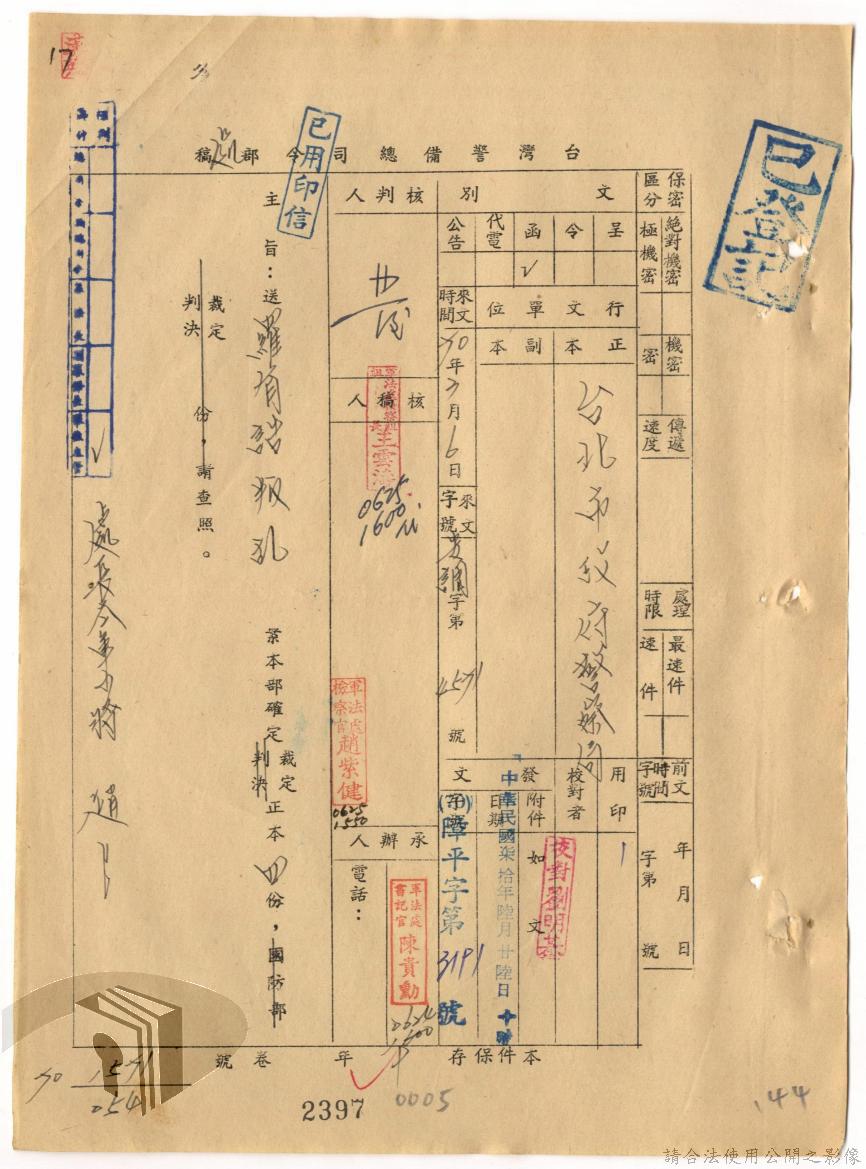 台灣警備總司令部處稿
已用印信
已登記
17
保密區分
絕對機密
極機密
機密
密
傳遞速度
處理時限
最速件
速件
前文時間字號
年月日
字第號
文別
呈
令
函
代電
公告
行文單位
正本
副本
台北市政府警察局
用印
校對者
校對劉明
發文
附件
如文
日期
中華民國柒拾年陸月廿陸日
字號
障平字第3191號
來文時間
70年3月6日
來文字號
字第4571號
核判人
核稿人
王雲
0625
1600
軍法處檢察官趙紫健
0625
1550
承辦人
電話：
軍法處書記官陳貴勳
0624
1500
主旨：送羅有諮叛亂案本部確定裁定判決正本四份，國防部
裁定判決份，請查照。
本件保存年卷號
70
1571
054
2397
0005
144
請合法使用公開之影像